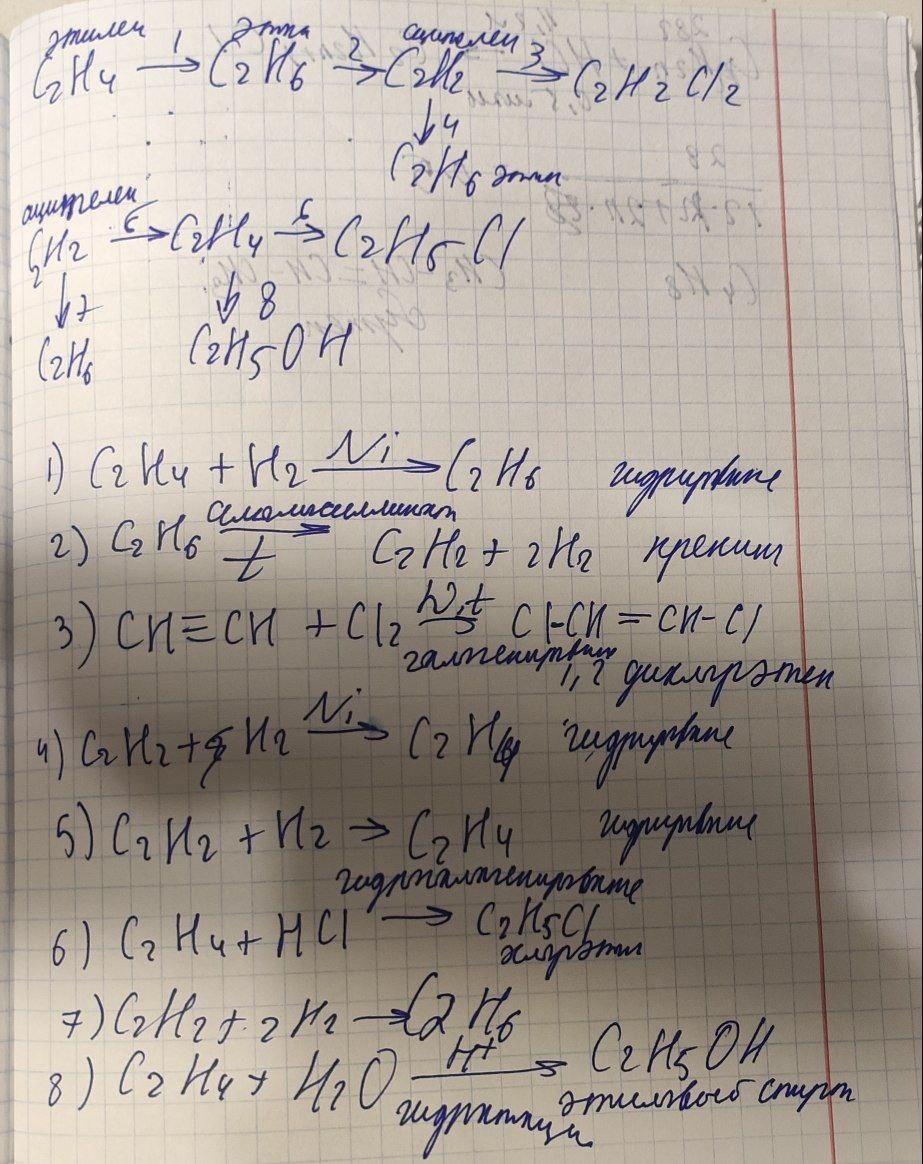 этилен 1 этан ацителен
C2H4 → C2H6 2→ C2H2 3→ C2H2Cl2
↓4
C2H6 этан
ацителен
C2H2 5→ C2H4 6→ C2H5Cl
↓7 ↓8
C2H6 C2H5OH
1) C2H4 + H2 Ni→ C2H6 гидрирование
2) C2H6 →t C2H2 + 2H2
3) CH≡CH + Cl2 → Cl-CH=CH-Cl
галогенирован 1,2 дихлорэтен
4) C2H2 + H2 Ni→ C2H4 гидрирование
5) C2H2 + H2 → C2H4 гидрирование
гидрогалогенирование
6) C2H4 + HCl → C2H5Cl
хлорэтан
7) C2H2 + 2H2 → C2H6
8) C2H4 + H2O H+→ C2H5OH
гидратация этиловый спирт